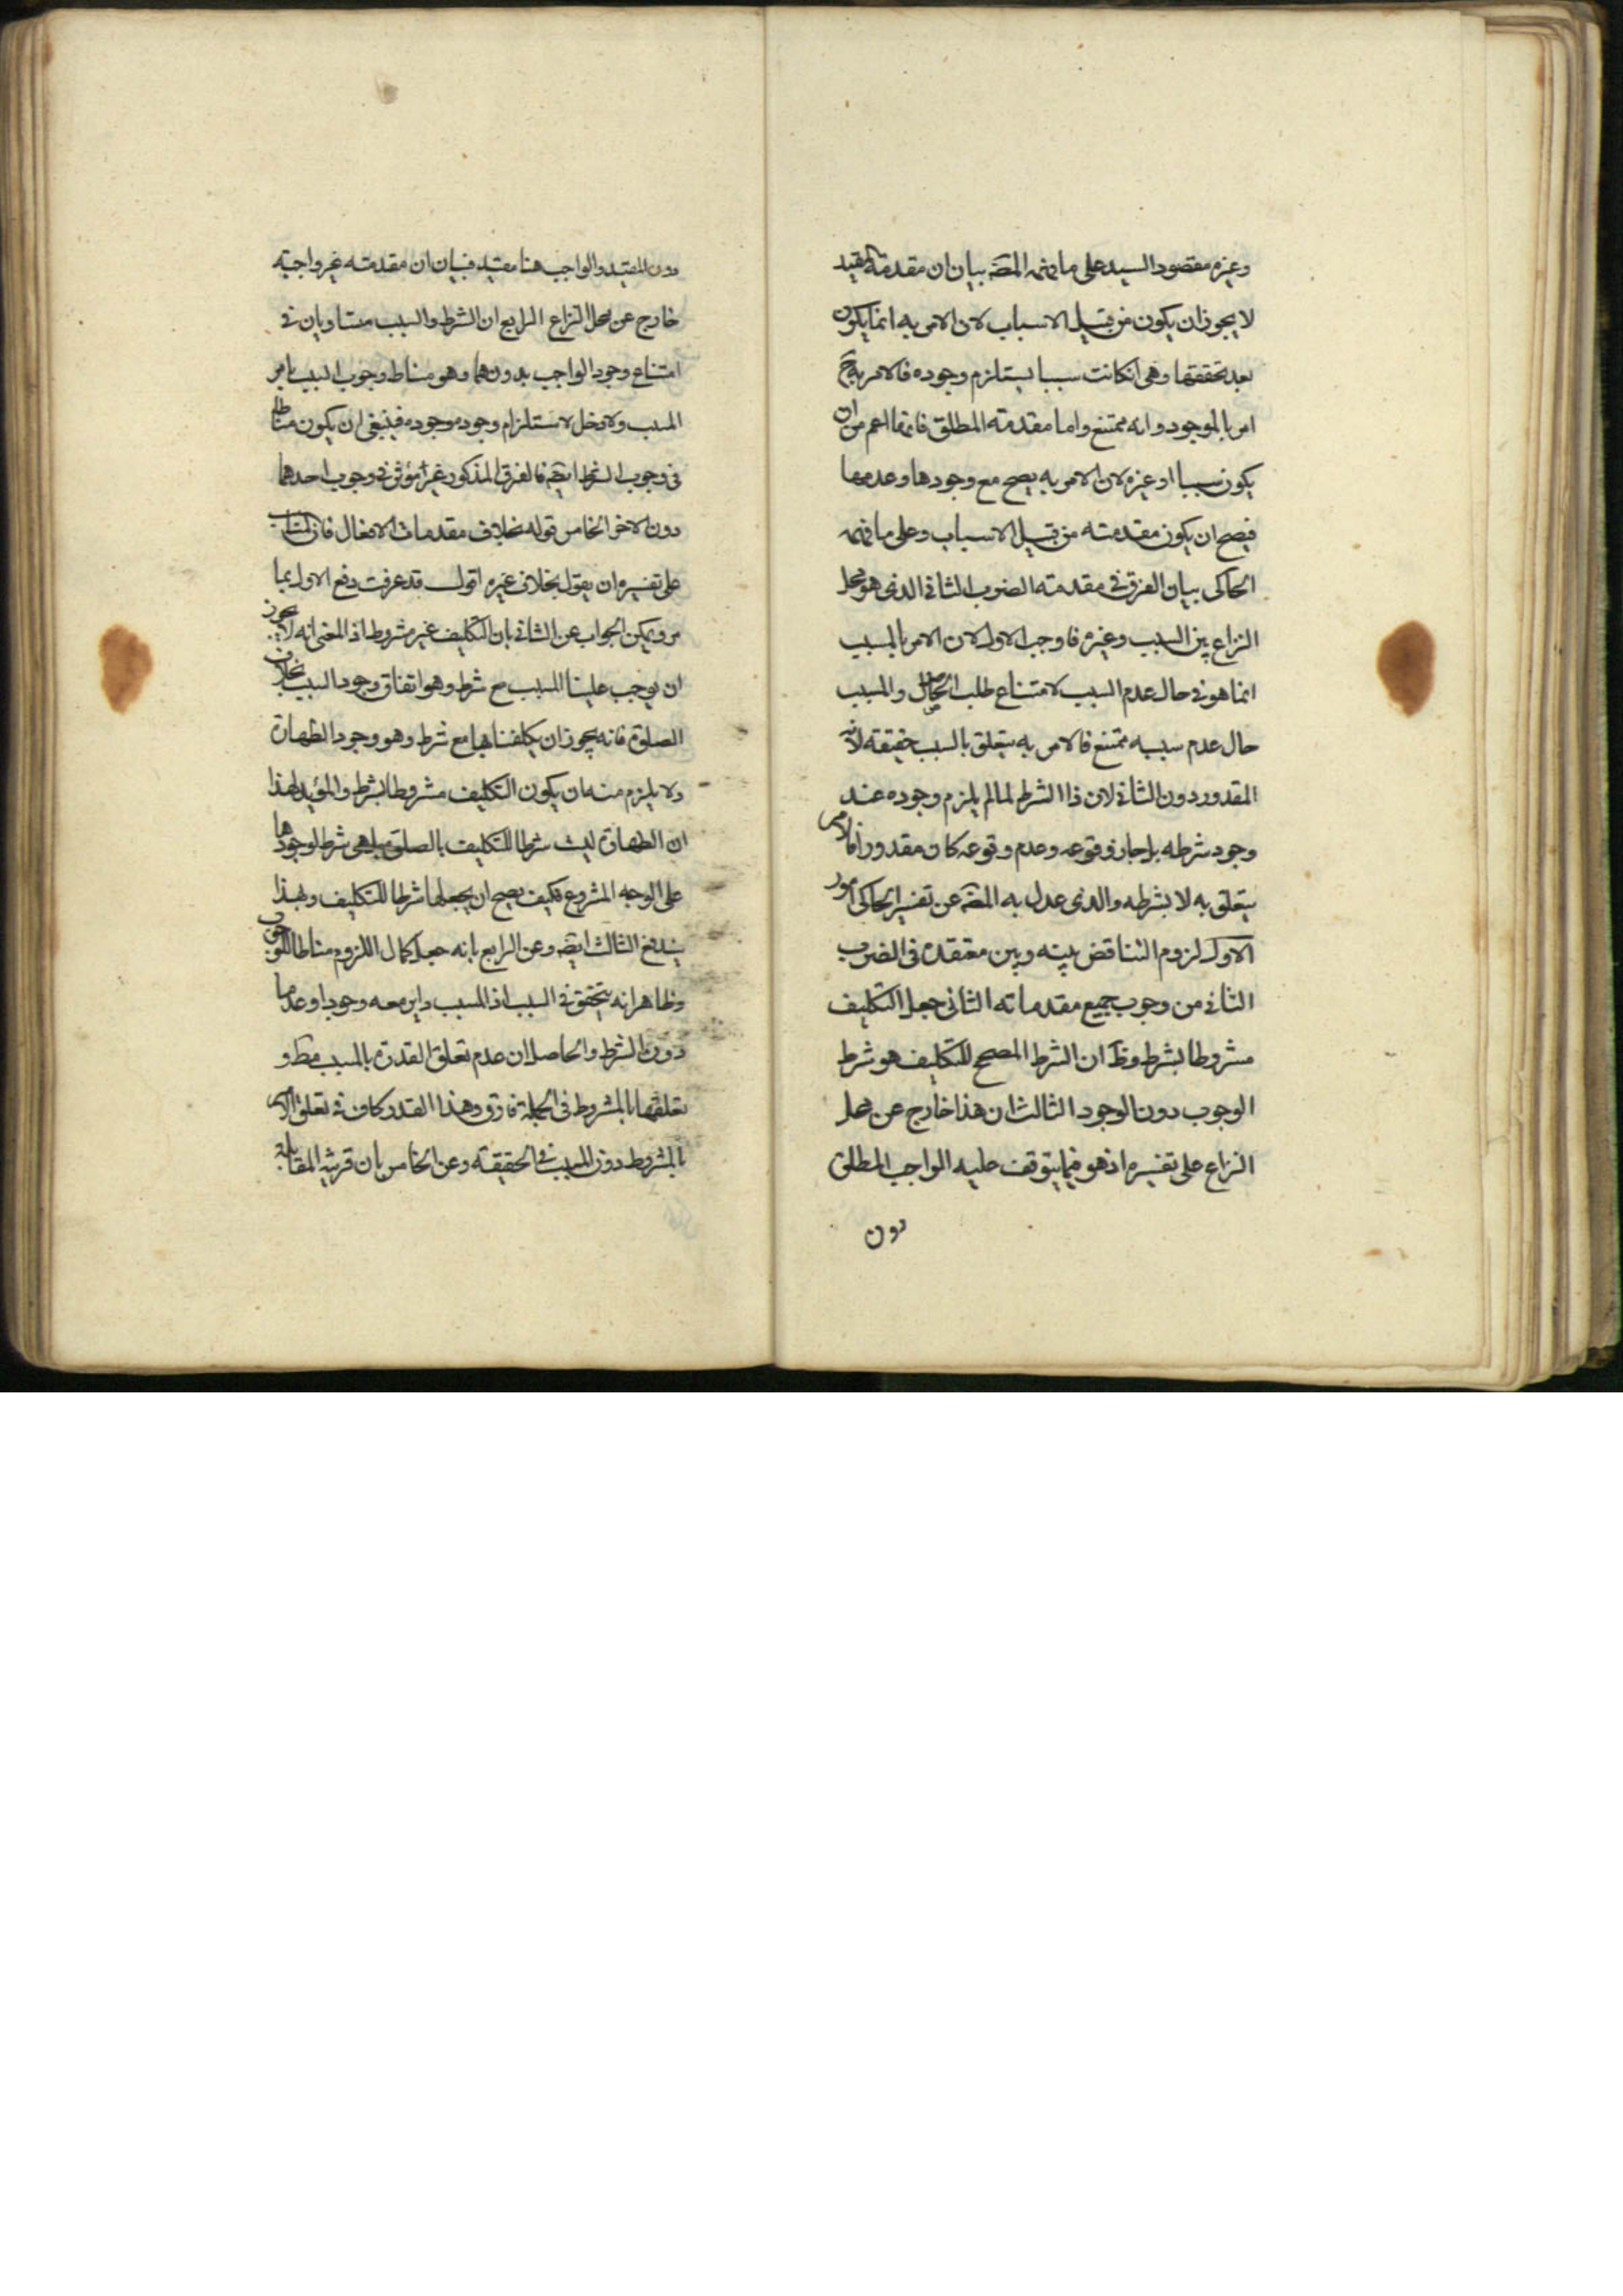 وغيره مقصود السيد على ما فهمه المصنف بيان ان مقدمة المقيد
لا يجوز ان يكون من قبيل الاسباب لان الامر به انما يكون
بعد تحققها وهي ان كانت سببا يستلزم وجوده فالامر به ح
امر بالموجود وانه ممتنع واما مقدمته المطلق فانها اعم من ان
يكون سببا او غيره لان الامر به يصح مع وجودها وعدمها
فيصح ان يكون مقدمته من قبيل الاسباب وعلى ما فهمه
الحاكي بيان الفرق في مقدمته الضرب الثاني الذي هو محل
النزاع بين السبب وغيره فاوجب الاول لان الامر بالمسبب
انما هو في حال عدم السبب لامتناع طلب الحاصل والمسبب
حال عدم سببه ممتنع فالامر به يتعلق بالسبب حقيقة لانه
المقدور دون الثاني لان ذا الشرط لما لم يلزم وجوده عند
وجود شرطه بل جاز وقوعه وعدم وقوعه كان مقدورا فالامر
يتعلق به لا بشرطه والذي عدل به المصنف عن تفسير الحاكي امور
الاول لزوم التناقض بينه وبين معتقده في الضرب
الثاني من وجوب جميع مقدماته الثاني جعل التكليف
مشروطا بشرط وظ ان الشرط المصحح للتكليف هو شرط
الوجوب دون الوجود الثالث ان هذا خارج عن محل
النزاع على تفسيره اذ هو فيما يتوقف عليه الواجب المطلق
دون
دون المقيد والواجب هنا مقيد فبيان ان مقدمته غير واجبة
خارج عن محل النزاع الرابع ان الشرط والسبب متساويان في
امتناع وجود الواجب بدونهما وهو مناط وجوب السبب بامر
المسبب ولا دخل لاستلزام وجوده وجوده فينبغي ان يكون مناطا
في وجوب الشرط ايضه فالفرق المذكور غير مؤثر في وجوب احدهما
دون الاخر الخامس قوله بخلاف مقدمات الافعال فان المناسب
على تفسيره ان يقول بخلاف غيره اقول قد عرفت دفع الاول بما
مر ويمكن الجواب عن الثاني بان التكليف غير مشروط اذ المعنى انه لا يجوز
ان يوجب علينا المسبب مع شرط وهو اتفاق وجود السبب بخلاف
الصلوة فانه يجوز ان يكلفنا بها مع شرط وهو وجود الطهارة
ولا يلزم منه ان يكون التكليف مشروطا بشرط والمؤيد لهذا
ان الطهارة ليست شرطا للتكليف بالصلوة بل هي شرط لوجودها
على الوجه المشروع فكيف يصح ان يجعلها شرطا للتكليف وبهذا
يندفع الثالث ايضه وعن الرابع بانه جعل كمال اللزوم مناطا للوجوب
وظاهر انه يتحقق في السبب اذ المسبب داير معه وجودا وعدما
دون الشرط والحاصل ان عدم تعلق القدرة بالمسبب مط و
تعلقها بالمشروط في الجملة فارق وهذا القدر كاف في تعلق الامر
بالمشروط دون المسبب في الحقيقة وعن الخامس بان قرينه المقابلة